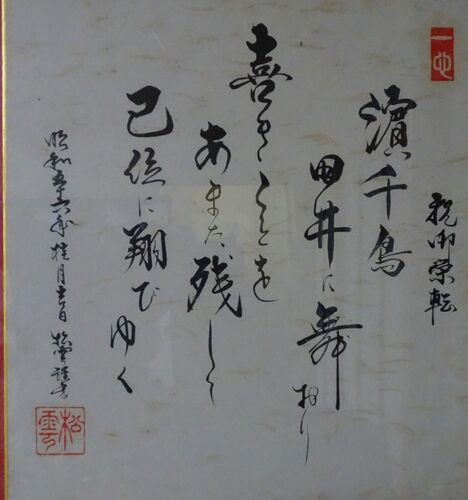 祝御栄転
濱千鳥
田井に舞おり
喜きことを
あまた残して
己位に翔びゆく
昭和五十六年桂月吉日 松雲謹書
松雲